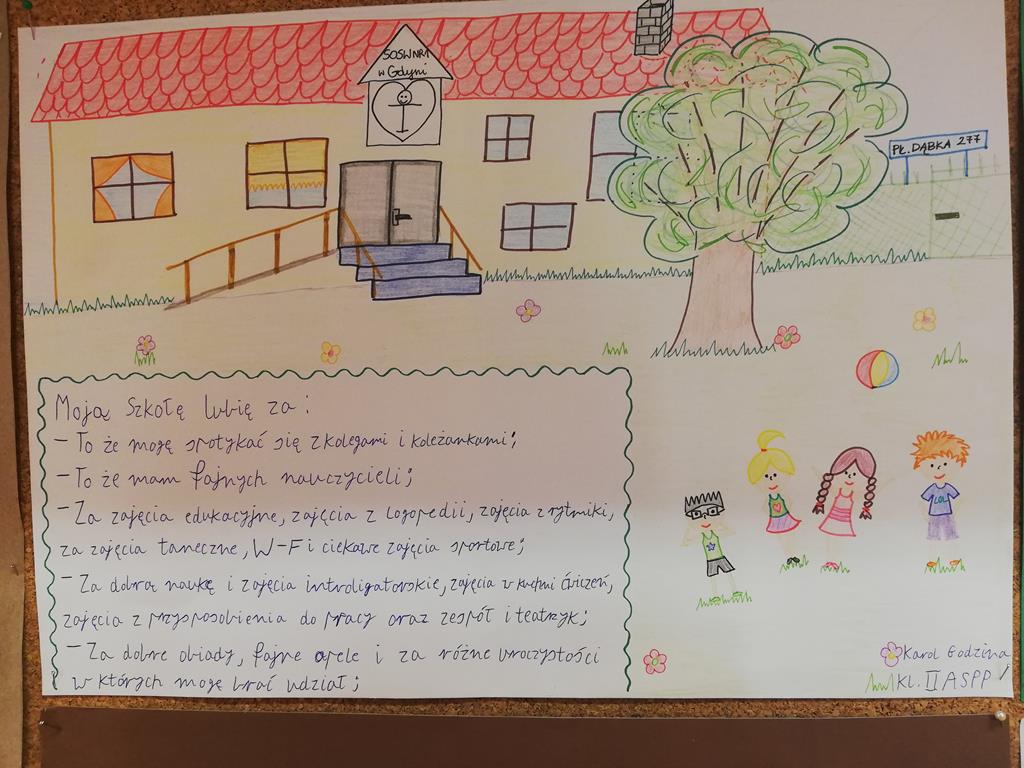 SOSW NR 1
w Gdyni
PŁ. DĄBKA 277
Moją Szkołę lubię za:
- To że mogę spotykać się z kolegami i koleżankami;
- To że mam fajnych nauczycieli;
- Za zajęcia edukacyjne, zajęcia z logopedii, zajęcia z rytmiki,
za zajęcia taneczne, W-F i ciekawe zajęcia sportowe;
- Za dobrą naukę i zajęcia introligatorskie, zajęcia w kuchni ćwiczeń,
zajęcia z przysposobienia do pracy oraz zespół i teatrzyk;
- Za dobre obiady, fajne apele i za różne uroczystości
w których mogę brać udział;
LOL
Karol Godzina
kl. II ASPP